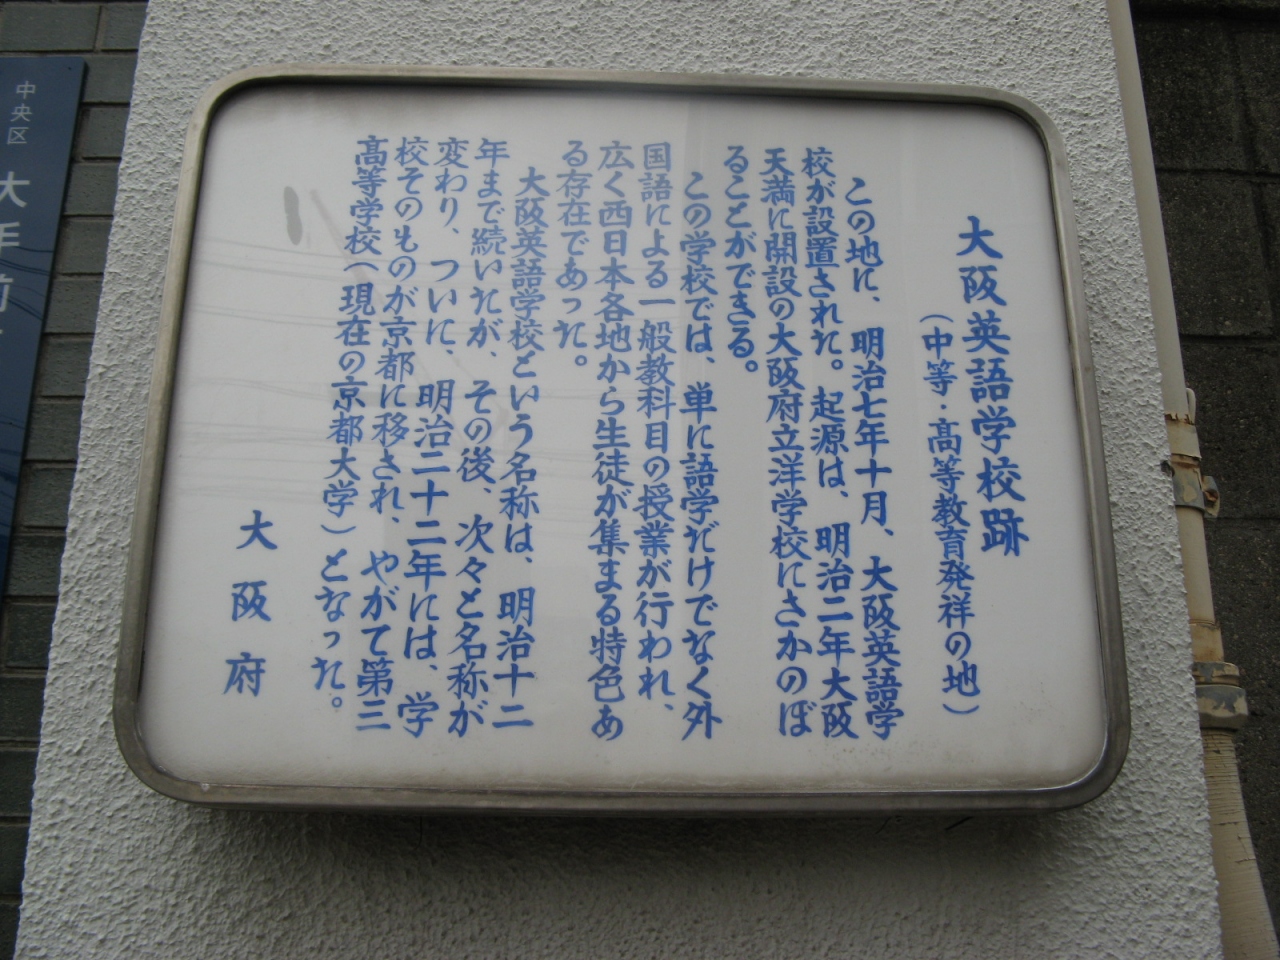 大阪英語学校跡
（中等・高等教育発祥の地）
この地に、明治七年十月、大阪英語学
校が設置された。起源は、明治二年大阪
天満に開設の大阪府立洋学校にさかのぼ
ることができる。
この学校では、単に語学だけでなく外
国語による一般教科目の授業が行われ、
広く西日本各地から生徒が集まる特色あ
る存在であった。
大阪英語学校という名称は、明治十二
年まで続いたが、その後、次々と名称が
変わり、ついに、明治二十二年には、学
校そのものが京都に移され、やがて第三
高等学校（現在の京都大学）となった。
大阪府
中央区
大手前